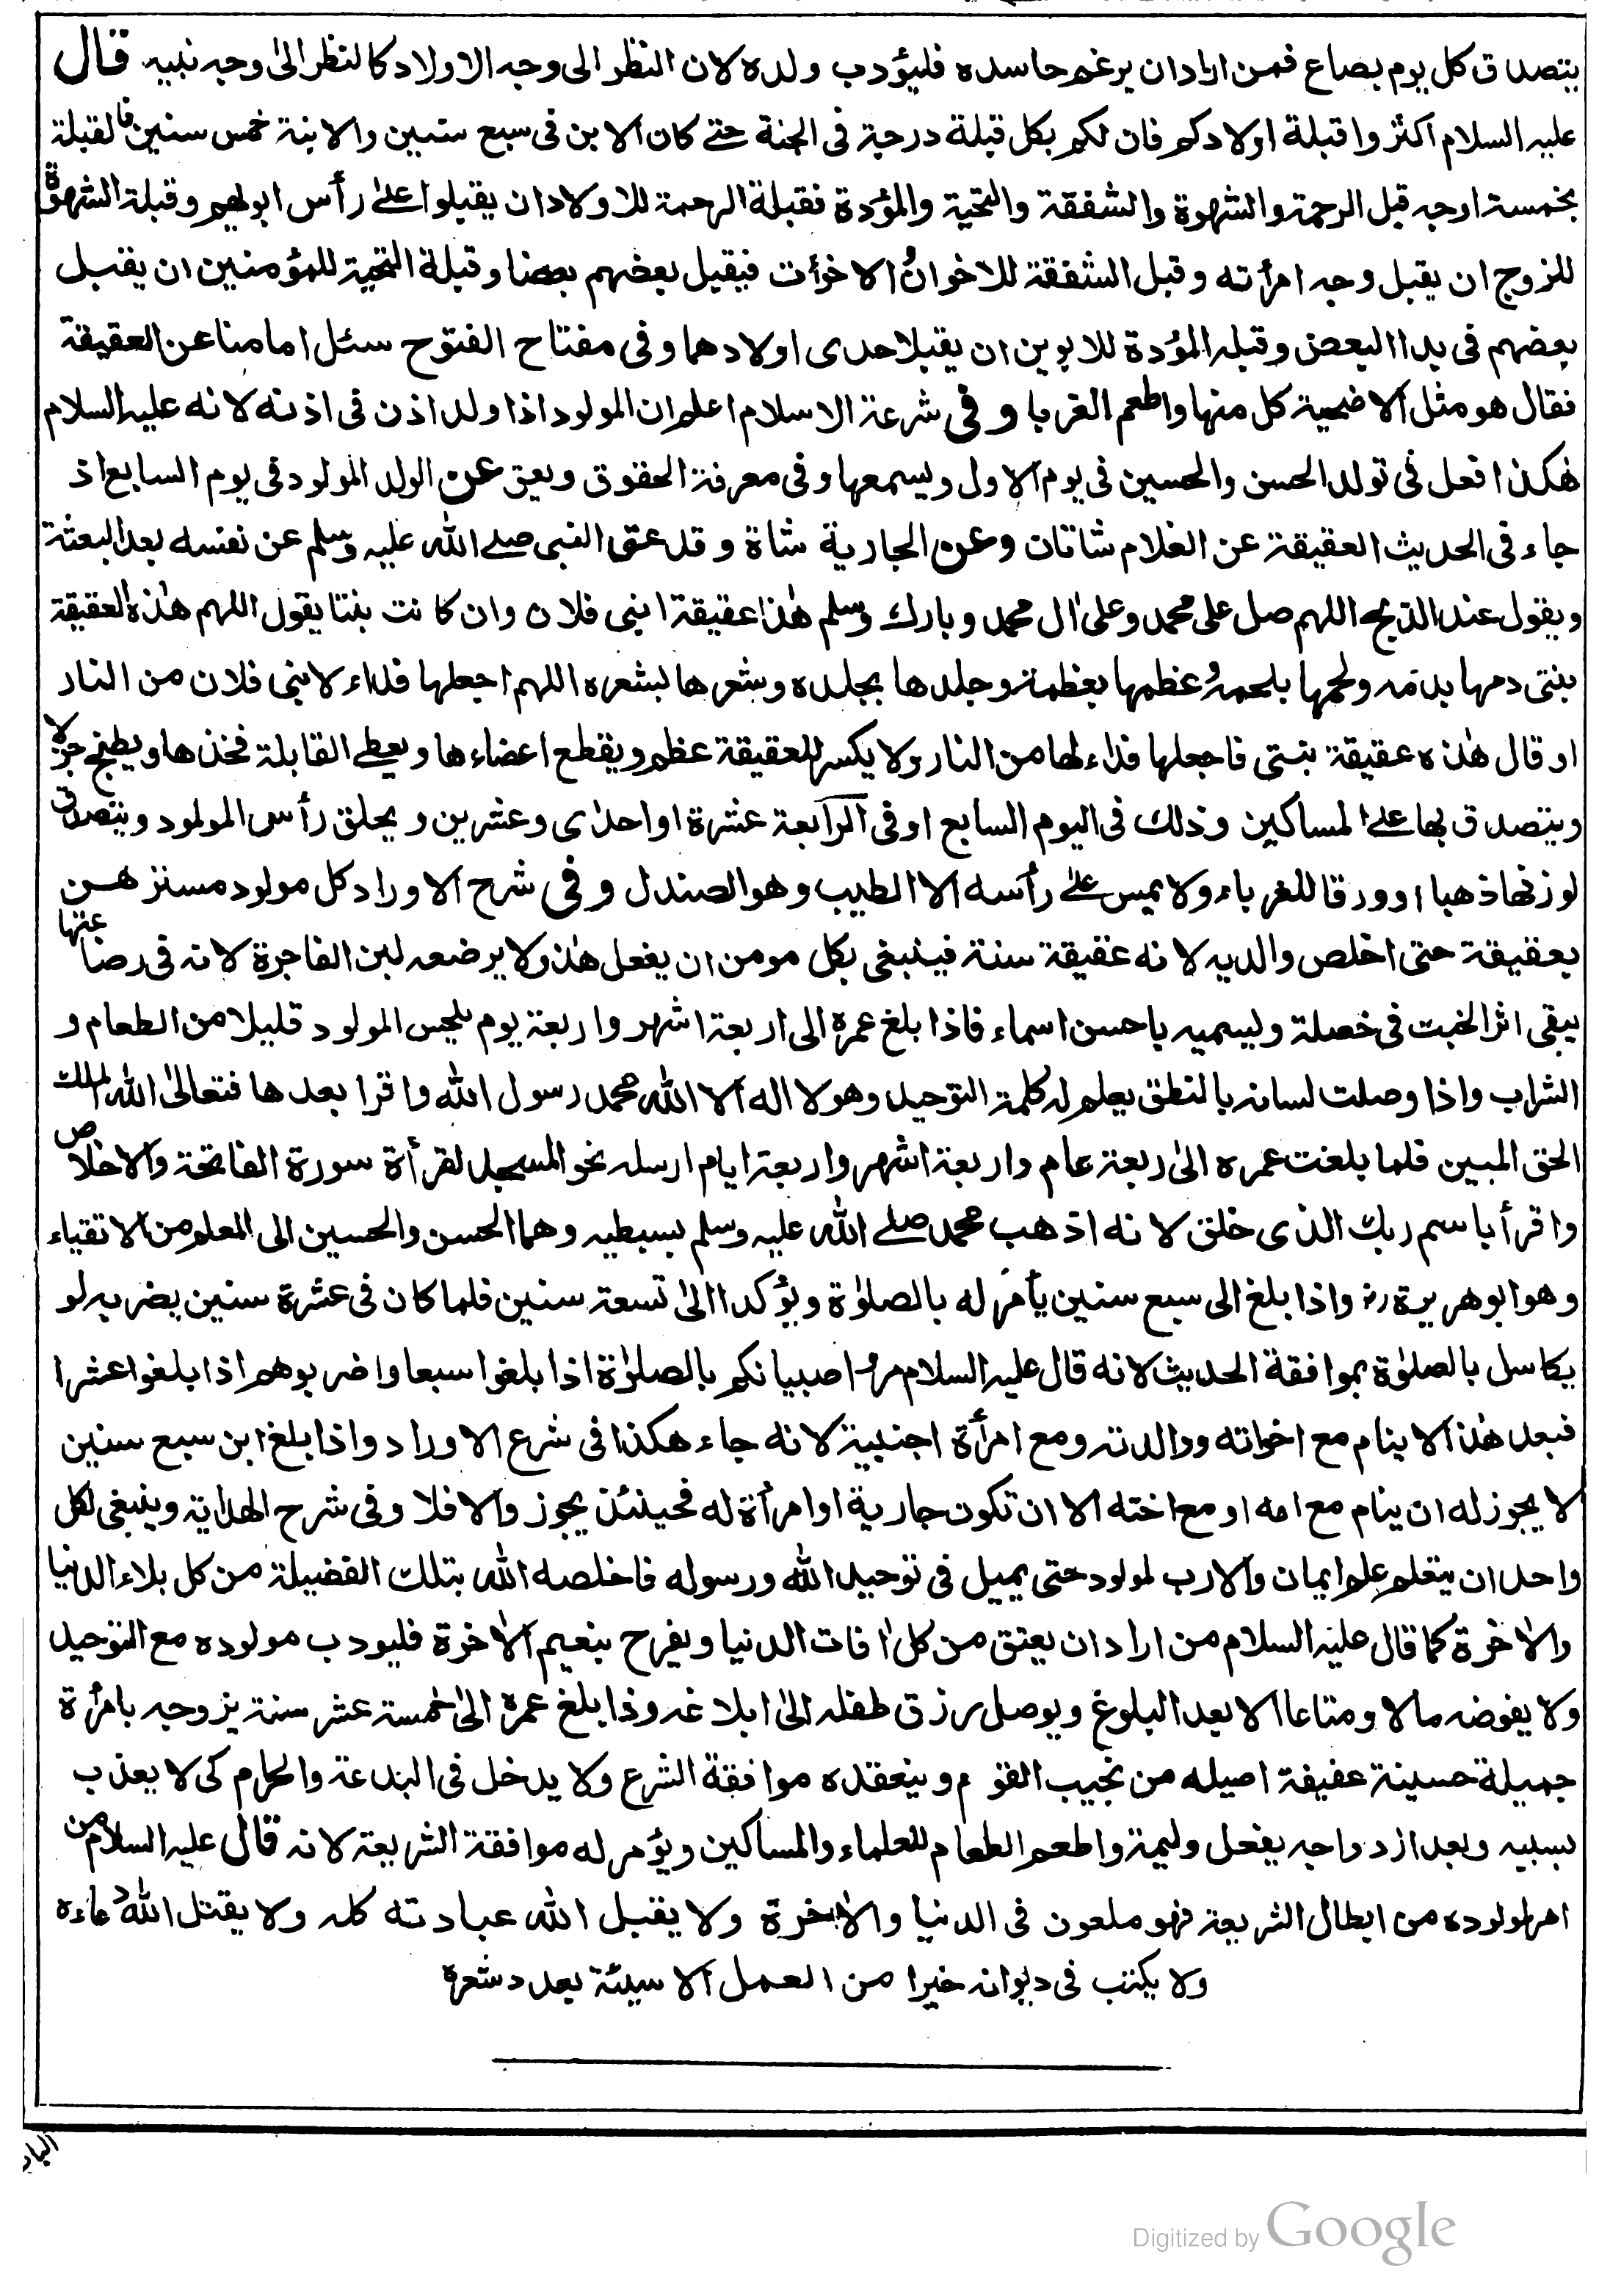 يتصدق كل يوم بصاع فمن اراد ان يرغم حاسده فليؤدب ولده لان النظر الى وجه الاولاد كالنظر الىٰ وجه نبيه قال
عليه السلام اكثروا قبلة اولادكم فان لكم بكل قبلة درجة فى الجنة حتے كان الابن فى سبع سنين والابنة خمس سنين فالقبلة
بخمسة اوجه قبل الرحمة والشهوة والشفقة والتحية والمؤدة فقبلة الرحمة للاولاد ان يقبلوا علےٰ رأس ابويهم وقبلة الشهوة
للزوج ان يقبل وجه امرأته وقبل الشفقة للاخوان الاخوأت فيقبل بعضهم بعضا وقبلة التحية للمؤمنين ان يقبل
بعضهم فى يدا البعض وقبلة المؤدة للابوين ان يقبلا حدى اولادهما وفى مفتاح الفتوح سئل امامنا عن العقيقة
فقال هو مثل الاضحية كل منها واطعم الغربا وفى شرعة الاسلام اعلم ان المولود اذا ولد اذن فى اذنه لانه عليه السلام
هٰكذا فعل فى تولد الحسن والحسين فى يوم الاول ويسمعها وفى معرفة الحقوق ويعق عن الولد المولود فى يوم السابع اذ
جاء فى الحديث العقيقة عن الغلام شاتان وعن الجارية شاة وقد عق النبى صلے الله عليه وسلم عن نفسه بعد البعثة
ويقول عند الذبح اللهم صل على محمد وعلىٰ اٰل محمد وبارك وسلم هٰذا عقيقة ابنى فلان وان كانت بنتا يقول اللهم هٰذه العقيقة
بنتى دمها بدمه ولحمها بلحمه وعظمها بعظمه وجلدها بجلده وشعرها بشعره اللهم اجعلها فداء لابنى فلان من النار
او قال هٰذه عقيقة بنتى فاجعلها فداء لها من النار ولا يكسر للعقيقة عظم ويقطع اعضاءها ويعطے القابلة فخذها ويطبخ جزلا
ويتصدق بها علے المساكين وذلك فى اليوم السابع او فى الرابعة عشرة او احدٰى وعشرين ويحلق رأس المولود ويتصدق
لوزنها ذهبا او ورقا للغرباء ولا يمس علےٰ رأسه الا الطيب وهو الصندل وفى شرح الاوراد كل مولود مسنزهن
بعقيقة حتى اخلص والديه لانه عقيقة سنة فينبغى بكل مومن ان يفعل هٰذا ولا يرضعه لبن الفاجرة لانه فى رضاعتها
يبقى اثر الخبث فى خصلة وليسميه باحسن اسماء فاذا بلغ عمره الى اربعة اشهر واربعة يوم يلحس المولود قليلا من الطعام و
الشراب واذا وصلت لسانه بالنطق يعلم له كلمة التوحيد وهو لا اله الا الله محمد رسول الله واقرا بعدها فتعالىٰ الله الملك
الحق المبين فلما بلغت عمره الىٰ ربعة عام واربعة اشهر واربعة ايام ارسله نحو المسجد لقرأة سورة الفاتحة والاخلاص
واقرأ باسم ربك الذى خلق لانه اذهب محمد صلے الله عليه وسلم بسبطيه وهما الحسن والحسين الى المعلم من الاتقياء
وهو ابو هريرة رض واذا بلغ الى سبع سنين يأمر له بالصلوٰة ويؤكدا الىٰ تسعة سنين فلما كان فى عشرة سنين يضربه لو
يكاسل بالصلوٰة بموافقة الحديث لانه قال عليه السلام مروا صبيانكم بالصلوٰة اذا بلغوا سبعا واضربوهم اذا بلغوا عشرا
فبعد هٰذا لا ينام مع اخواته ووالدته ومع امرأة اجنبية لانه جاء هكذا فى شرع الاوراد واذا بلغ ابن سبع سنين
لا يجوز له ان ينام مع امه او مع اخته الا ان تكون جارية او امرأة له فحينئذ يجوز والا فلا وفى شرح الهداية وينبغى لكل
واحد ان يتعلم علم ايمان والارب لمولود حتى يميل فى توحيد الله ورسوله فاخلصه الله بتلك الفضيلة من كل بلاء الدنيا
والاٰخرة كما قال عليه السلام من اراد ان يعتق من كل اٰفات الدنيا ويفرح بنعيم الاٰخرة فليودب مولوده مع التوحيد
ولا يفوضه مالا ومتاعا الا بعد البلوغ ويوصل رزق طفله الىٰ ابلاغه وذا بلغ عمره الىٰ خمسة عشر سنة يزوجه بامرأة
جميلة حسينة عفيفة اصيله من نجيب القوم وينعقده موافقة الشرع ولا يدخل فى البدعة والحرام كى لا يعذب
بسببه وبعد ازدواجه يفعل وليمة واطعم الطعام للعلماء والمساكين ويؤمر له موافقة الشريعة لانه قال عليه السلام من
امر لمولوده من ابطال الشريعة فهو ملعون فى الدنيا والاٰخرة ولا يقبل الله عبادته كله ولا يقتل الله دعاءه
ولا يكتب فى ديوانه خيرا من العمل الا سيئة بعدد شعره
الباب
Digitized by Google